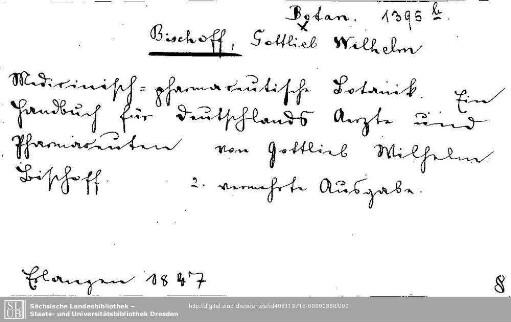 Botan. 1395 b.
Bischoff, Gottlieb Wilhelm
Medicinisch-pharmaceutische Botanik. Ein
Handbuch für Deutschlands Aerzte und
Pharmaceuten von Gottlieb Wilhelm
Bischoff. 2. vermehrte Ausgabe.
Erlangen 1847 8
Sächsische Landesbibliothek –
Staats- und Universitätsbibliothek Dresden